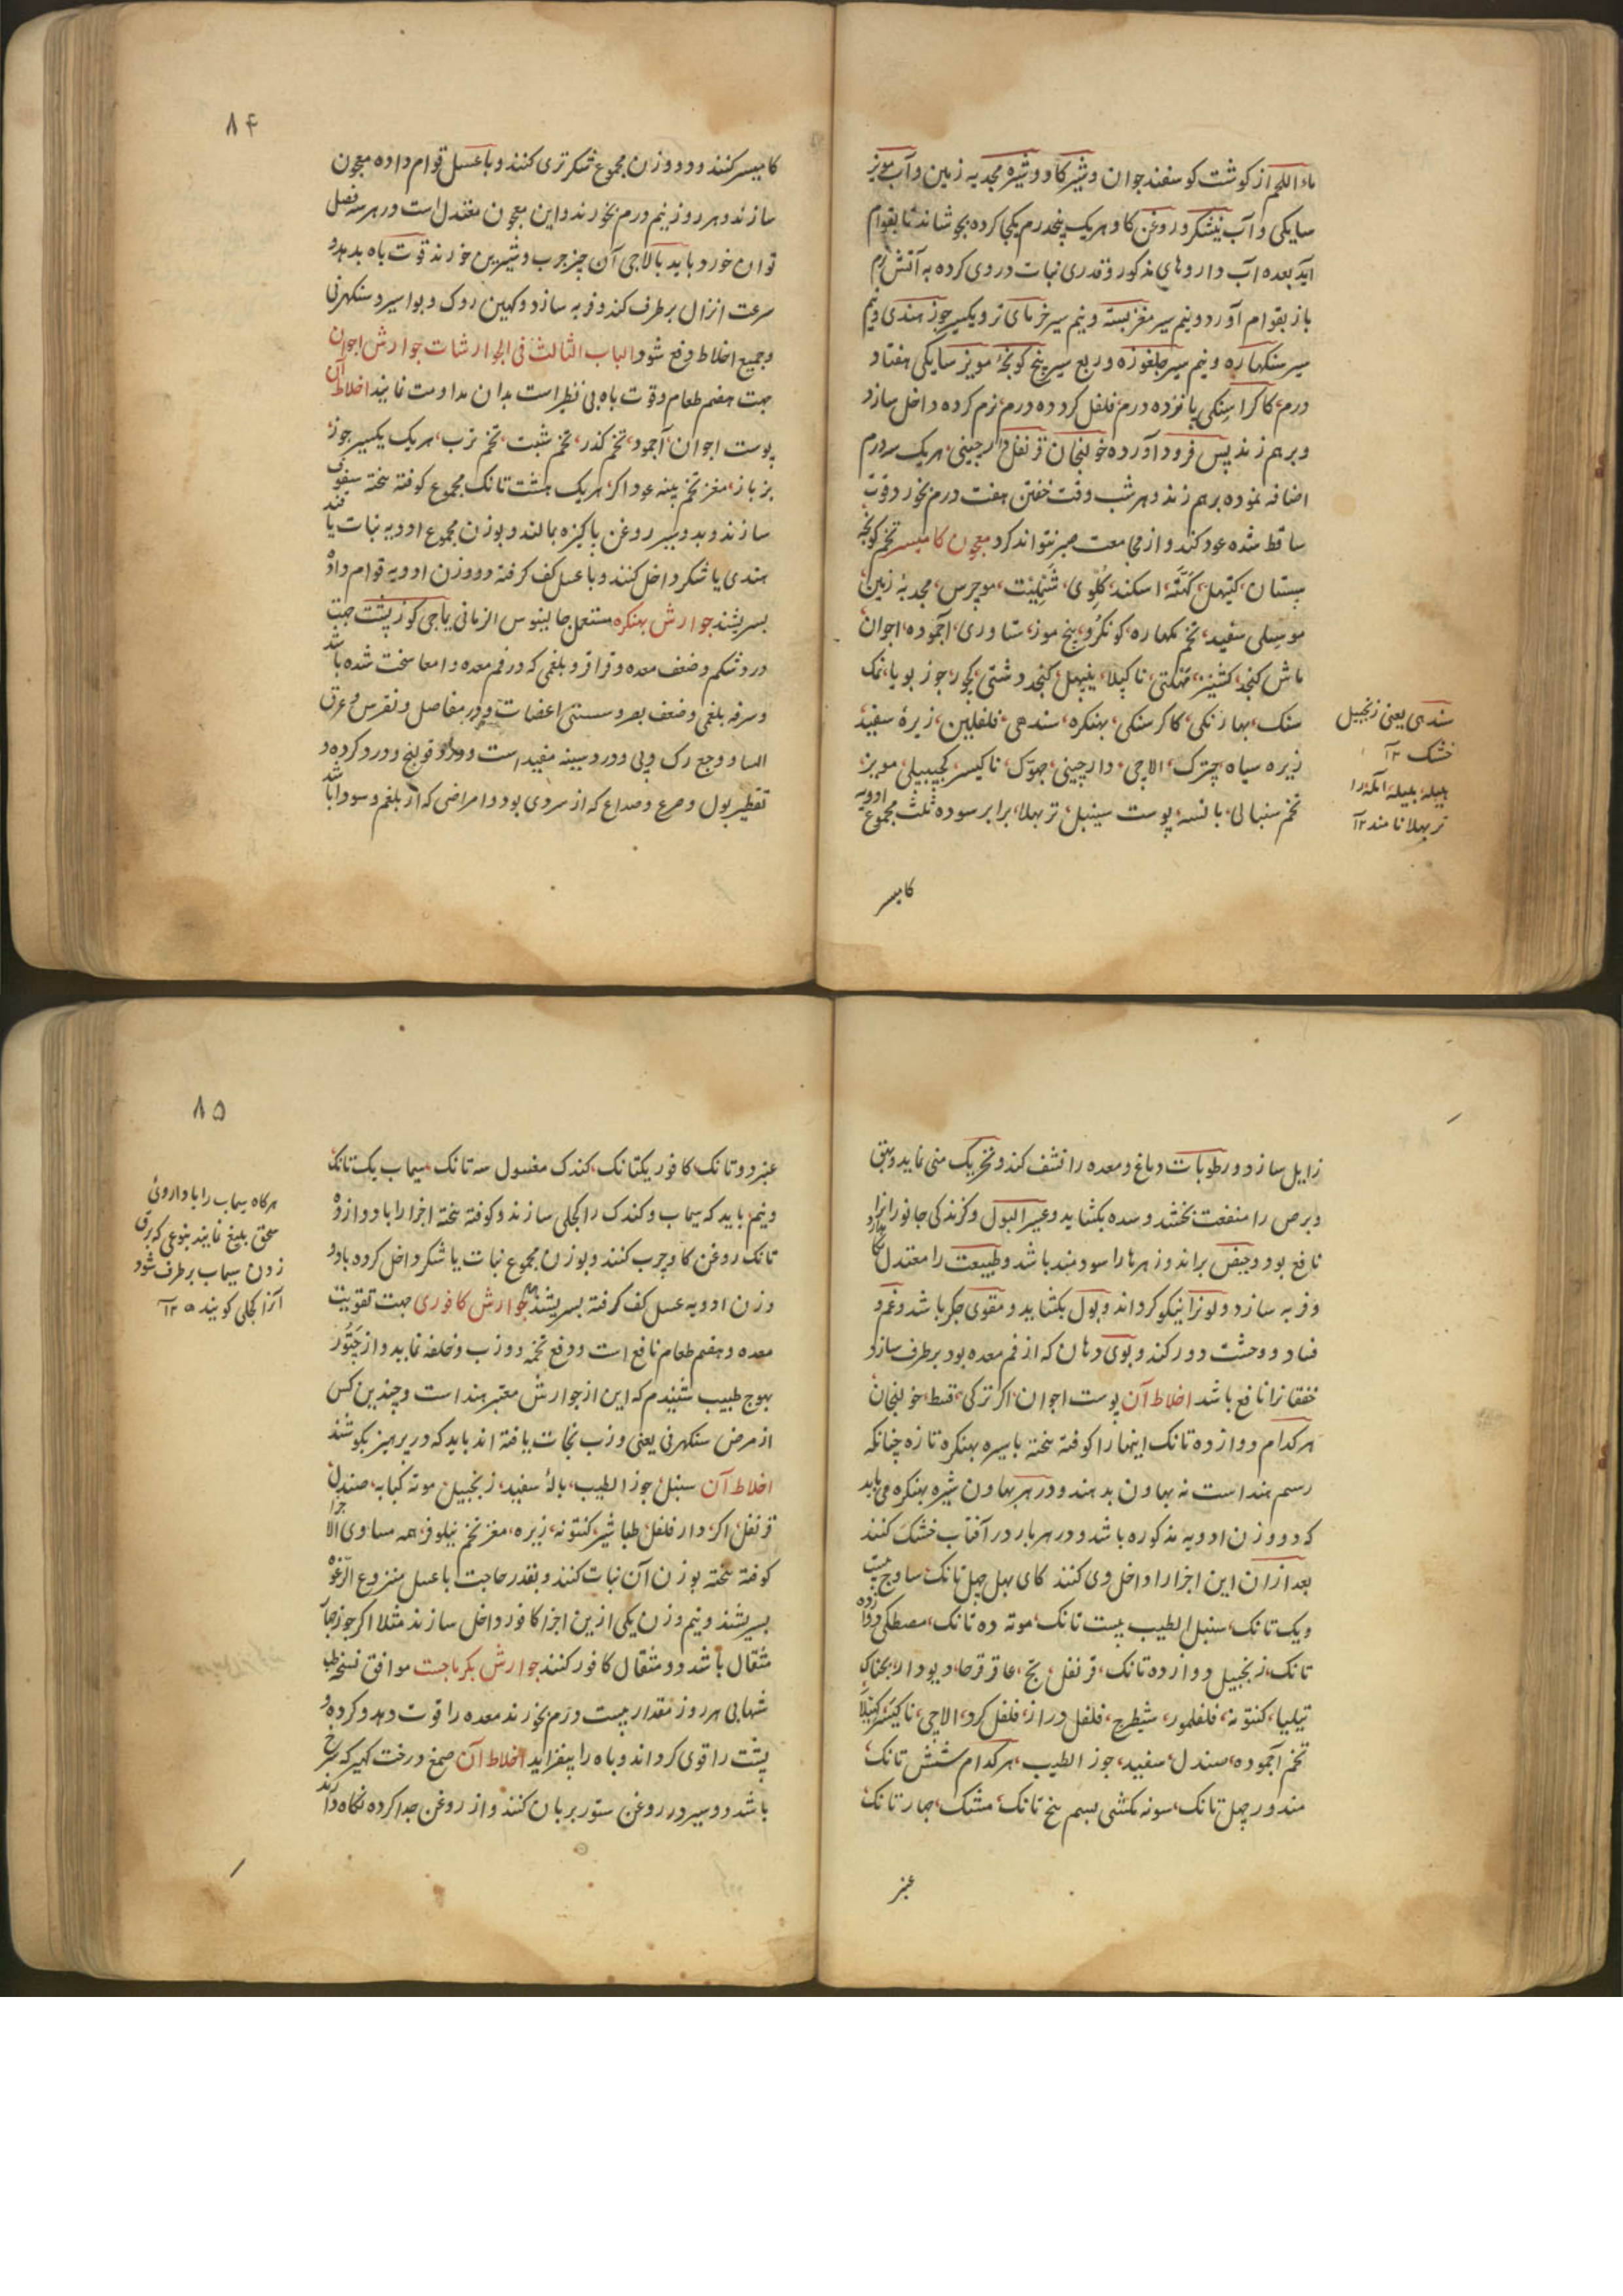 ماء اللحم از کوشت کوسفند جوان و شیر کاو و شیره مجدیه زمین و آب مویز
سایکی و آب نیشکر و روغن کاو هریک پنجدرم یکجا کرده بجوشانند تا بقوام
آید بعده آب داروهای مذکور و قدری نبات در وی کرده به آتش نرم
باز بقوام آورد و نیم سیر مغز پسته و نیم سیر خرمای تر و یکسیر جوز هندی و نیم
سیر سنکهاره و نیم سیر چلغوزه و ربع سیر بیخ کونجه مویز سایکی هفتاد
درم کاکراسنکی پانزده درم فلفل کرد ده درم نرم کرده داخل سازد
و برهم زند پس فرود آورده خولنجان قرنفل دارچینی هریک سه درم
اضافه نموده برهم زند و هر شب وقت خفتن هفت درم بخورد قوت
ساقط شده عود کند و از مجامعت صبر نتواند کرد معجون کامیسر تخم کونجه
پستان کتیهل کهته اسکند کلوی موچرس مجدیه زمین
موسلی سفید تخم مکهاره کونکرو بیخ موز ستاوری آجموده اجوان
ماش کنجد کشنیز ناکیلا کنجد دشتی کچور جوز بویا نمک
سنک بهارنکی کاکرسنکی بهنکره سندهی فلفلین زیره سفید
زیره سیاه چترک الاچی دارچینی ناکیسر کجپیپلی مویز
تخم سنبالی بانسه پوست سینبل تربهلا برابر سوده ثلث مجموع ادویه
سندهی یعنی زنجبیل
خشک ۱۲
هلیله بلیله آمله را
تربهلا نامند ۱۲
کامیسر
۸۴
کامیسر کنند و دو وزن مجموع شکر تری کنند و با عسل قوام داده معجون
سازند و هر روز نیم درم بخورند و این معجون معتدل است و در هر سه فصل
توان خورد و باید بالاجی آن چیز چرب و شیرین خورند قوت باه بدهد و
سرعت انزال برطرف کند و فربه سازد و کهین روک و بواسیر و سنکهرنی
و جمیع اخلاط دفع شود الباب الثالث فی الجوارشات جوارش اجوان
جهت هضم طعام و قوت باه بی نظیر است بدان مداومت نمایند اخلاط آن
پوست اجوان آجمود تخم کذر تخم شبت تخم ترب هریک یکسیر جوز
بزباز مغز تخم پنبه عود اکر هریک هشت تانک مجموع کوفته بیخته سفوف
سازند و بدو سیر روغن پاکیزه بمالند و بوزن مجموع ادویه نبات یا قند
هندی یا شکر داخل کنند و با عسل کف کرفته دو وزن ادویه قوام داده
بسریشند جوارش بهنکره مستعمل جالینوس الزمانی یاجی کوز پشت جهت
درد شکم و ضعف معده و قراقر و بلغمی که در فم معده و امعا سخت شده باشد
و سرفه بلغمی و ضعف بصر و سستی اعضا و درد مفاصل و نقرس و عرق
النسا و وجع رک و پی و درد سینه مفید است و قولنج و درد کرده و
تقطیر بول و صرع و صداع که از سردی بود و امراضی که از بلغم و سودا باشد
زایل سازد و رطوبات دماغ و معده را نشف کند و تحریک منی نماید و بهق
و برص را منفعت بخشد و سده بکشاید و عسر البول و کزندکی جانوران را
نافع بود و حیض براند و زهرها را سودمند باشد و طبیعت را معتدل
و فربه سازد و لون را نیکو کرداند و بول بکشاید و مقوی جکر باشد و غم و
فساد و وحشت دور کند و بوی دهان که از فم معده بود برطرف سازد
خفقان را نافع باشد اخلاط آن پوست اجوان اکر ترکی قسط خولنجان
هرکدام دوازده تانک اینها را کوفته بیخته با سیره بهنکره تازه چنانکه
رسم هند است نه بهاون بدهند و در هر بهاون شیره بهنکره می باید
که دو وزن ادویه مذکوره باشد و در هر بار در آفتاب خشک کنند
بعد از ان این اجزا را داخل وی کنند کای بهل چهل تانک ساوج بیست
و یک تانک سنبل الطیب بیست تانک موته ده تانک مصطکی دوازده
تانک زنجبیل دوازده تانک قرنفل بج عاقرقرحا دیودار
کنتونه فلفلمور شیطرج فلفل دراز فلفل کرد الاچی ناکیسر
تخم آجموده صندل سفید جوز الطیب هرکدام شش تانک
مندور چهل تانک سونه مکشی بسم پنج تانک مشک چهار تانک
عنبر
۸۵
عنبر دو تانک کافور یکتانک کندک مغسول سه تانک سیماب یک تانک
و نیم باید که سیماب و کندک را کجلی سازند و کوفته بیخته اجزا را با دوازده
تانک روغن کاو چرب کنند و بوزن مجموع نبات یا شکر داخل کرده با دو
وزن ادویه عسل کف کرفته بسریشند جوارش کافوری جهت تقویت
معده و هضم طعام نافع است و دفع تخمه و ذرب و خلفه نماید و از
بهوج طبیب شنیدم که این از جوارش معتبر هند است و چندین کس
از مرض سنکهرنی یعنی ذرب نجات یافته اند باید که در پرهیز بکوشند
اخلاط آن سنبل جوز الطیب بالهٔ سفید زنجبیل موته کبابه صندل
قرنفل اکر دار فلفل طباشیر کنتونه زیره مغز تخم نیلوفر همه مساوی الاجزا
کوفته بیخته بوزن آن نبات کنند و بقدر حاجت با عسل منزوع الرغوه
بسریشند و نیم وزن یکی ازین اجزا کافور داخل سازند مثلا اکر جوز چهار
مثقال باشد دو مثقال کافور کنند جوارش بکرماجیت موافق نسخه طب
شهابی هر روز مقدار بیست درم بخورند معده را قوت دهد و کرده و
پشت را قوی کرداند و باه را بیفزاید اخلاط آن صمغ درخت کهیر که سرخ
باشد دو سیر در روغن ستور بریان کنند و از روغن جدا کرده نکاه دارند
هرکاه سیماب را با داروئی
سحق بلیغ نمایند بنوعی که برق
زدن سیماب برطرف شود
آنرا کجلی کویند ۱۲